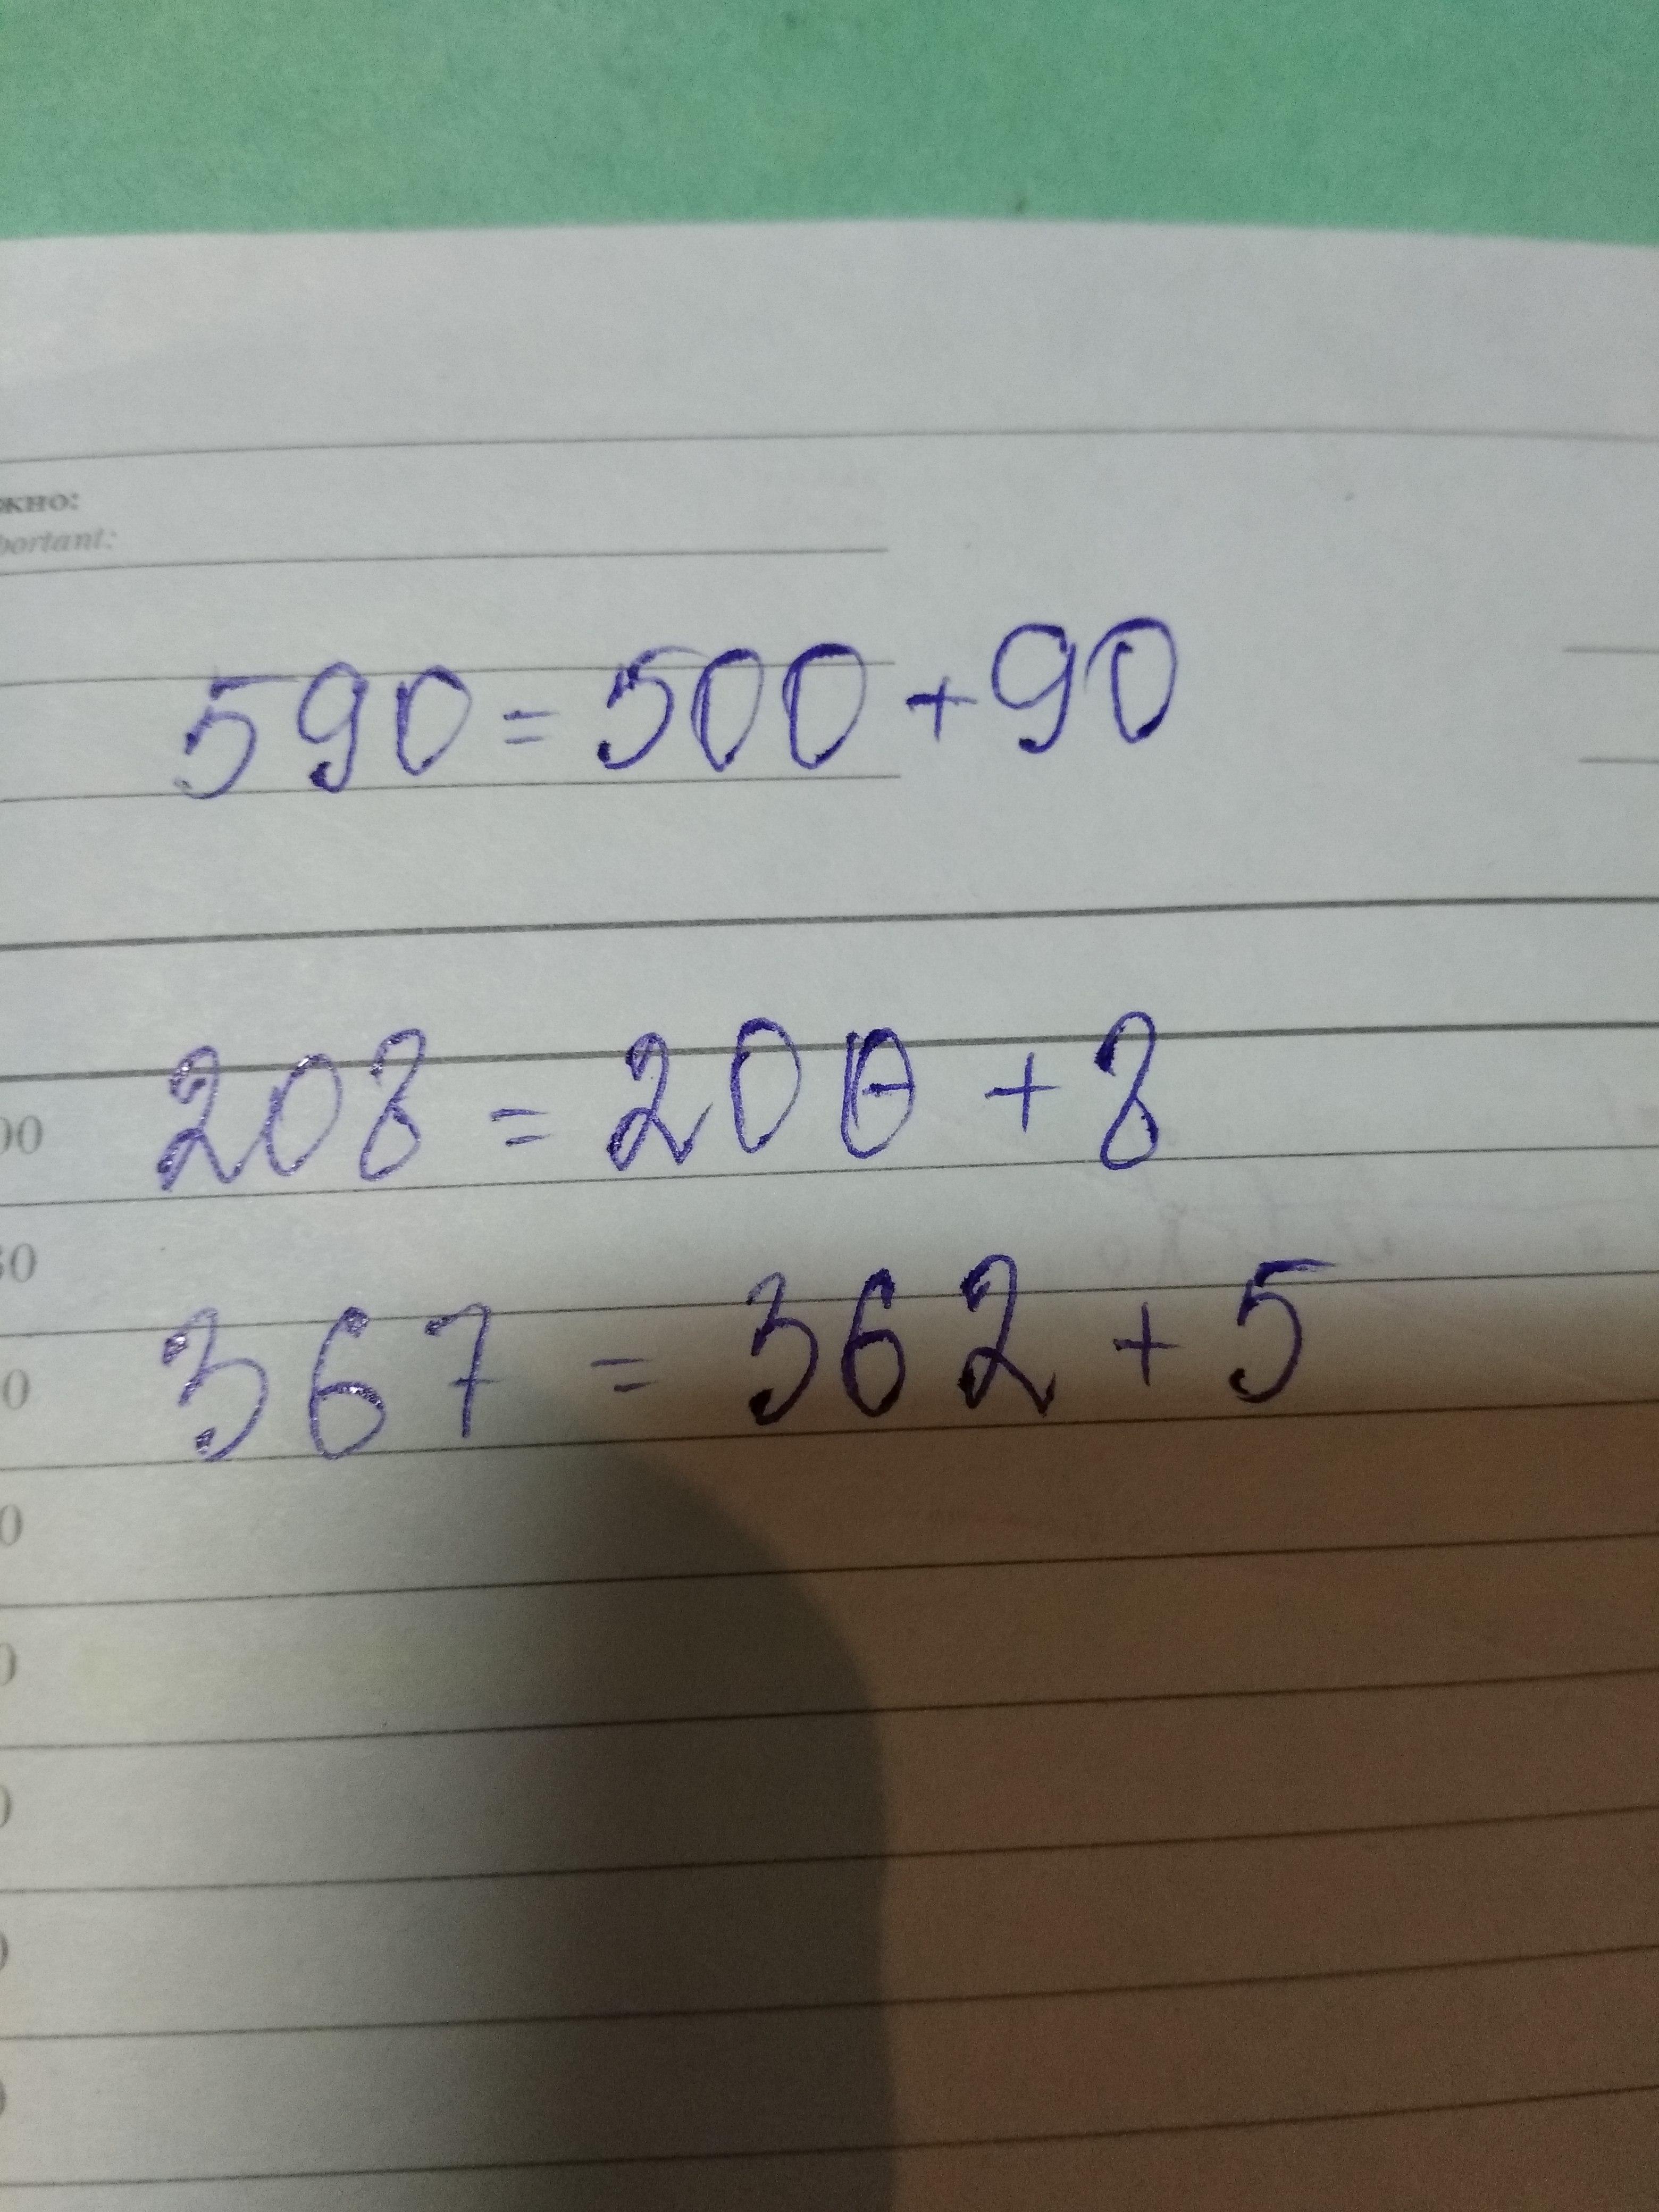 жно:
portant:
590 = 500 + 90
208 = 200 + 8
00
30
367 = 362 + 5
0
0
0
0
0
0